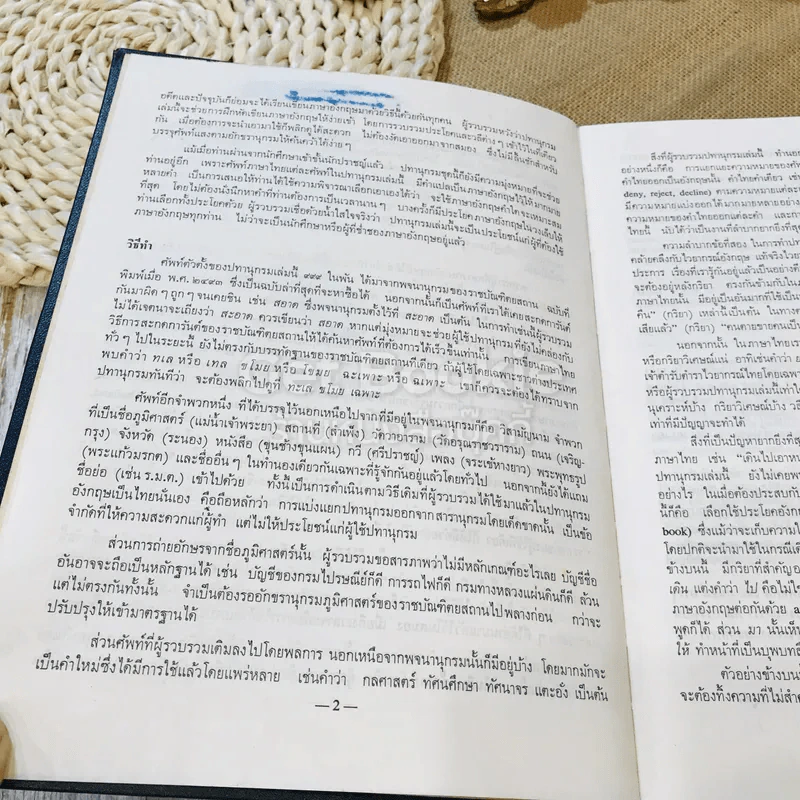 ยดีตและปัจจุบันก็ย่อมจะได้เรียนเขียนภาษาอังกฤษมาด้วยวิธีนี้ด้วยกันทุกคน ผู้รวบรวมหวังว่าปทานุกรม
เล่มนี้จะช่วยการฝึกหัดเขียนภาษาอังกฤษให้ง่ายเข้า โดยการรวบรวมประโยคและวลีต่างๆ เข้าไว้ในที่เดียว
กัน เมื่อต้องการจะนำเอามาใช้ก็พลิกดูได้สะดวก ไม่ต้องงัดเอาออกมาจากสมอง ซึ่งไม่มีลิ้นชักสำหรับ
บรรจุศัพท์แสงตามอักขรานุกรมให้ค้นคว้าได้ง่าย ๆ
แม้เมื่อท่านผ่านจากนักศึกษาเข้าขั้นนักปราชญ์แล้ว ปทานุกรมชุดนี้ก็ยังมีความมุ่งหมายที่จะช่วย
ท่านอยู่อีก เพราะศัพท์ภาษาไทยแต่ละศัพท์ในปทานุกรมเล่มนี้ มีคำแปลเป็นภาษาอังกฤษไว้ให้มากมาย
หลายคำ เป็นการเสนอให้ท่านได้ใช้ความพิจารณาเลือกเอาเองได้ว่า จะใช้ภาษาอังกฤษคำใดจะเหมาะสม
ที่สุด โดยไม่ต้องนั่งนึกหาคำที่ท่านต้องการเป็นเวลานาน ๆ บางครั้งก็มีประโยคภาษาอังกฤษในวงเล็บให้
ท่านเลือกทั้งประโยคด้วย ผู้รวบรวมเชื่อด้วยน้ำใสใจจริงว่า ปทานุกรมเล่มนี้จะเป็นประโยชน์แก่ผู้ที่ต้องใช้
ภาษาอังกฤษทุกท่าน ไม่ว่าจะเป็นนักศึกษาหรือผู้ที่ช่ำชองภาษาอังกฤษอยู่แล้ว
วิธีทำ
ศัพท์ตัวตั้งของปทานุกรมเล่มนี้ ๙๙๙ ในพัน ได้มาจากพจนานุกรมของราชบัณฑิตยสถาน ฉบับตี
พิมพ์เมื่อ พ.ศ. ๒๔๙๓ ซึ่งเป็นฉบับล่าที่สุดที่จะหาซื้อได้ นอกจากนั้นก็เป็นศัพท์ที่เราได้เคยสะกดการันต์
กันมาผิด ๆ ถูก ๆ จนเคยชิน เช่น สอาด ซึ่งพจนานุกรมตั้งไว้ที่ สะอาด เป็นต้น ในการทำเช่นนี้ผู้รวบรวม
ไม่ได้เจตนาจะเถียงว่า สะอาด ควรเขียนว่า สอาด หากแต่มุ่งหมายจะช่วยผู้ใช้ปทานุกรมที่ยังไม่คล่องกับ
วิธีการสะกดการันต์ของราชบัณฑิตยสถานให้ได้ค้นหาศัพท์ที่ต้องการได้เร็วขึ้นเท่านั้น การเรียนภาษาไทย
ทั่ว ๆ ไปในระยะนี้ ยังไม่ตรงกับบรรทัดฐานของราชบัณฑิตยสถานทีเดียว ถ้าผู้ใช้โดยเฉพาะชาวต่างประเทศ
พบคำว่า ทเล หรือ เทล ขโมย หรือ โขมย ฉะเพาะ หรือ ฉเพาะ เขาก็ควรจะได้ทราบจาก
ปทานุกรมทันทีว่า จะต้องพลิกไปดูที่ ทะเล ขโมย เฉพาะ
ศัพท์อีกจำพวกหนึ่ง ที่ได้บรรจุไว้นอกเหนือไปจากที่มีอยู่ในพจนานุกรมก็คือ วิสามัญนาม จำพวก
ที่เป็นชื่อภูมิศาสตร์ (แม่น้ำเจ้าพระยา) สถานที่ (สำเพ็ง) วัดวาอาราม (วัดอรุณราชวราราม) ถนน (เจริญ-
กรุง) จังหวัด (ระนอง) หนังสือ (ขุนช้างขุนแผน) กวี (ศรีปราชญ์) เพลง (จระเข้หางยาว) พระพุทธรูป
(พระแก้วมรกต) และชื่ออื่น ๆ ในทำนองเดียวกันเฉพาะที่รู้จักกันอยู่แล้วโดยทั่วไป นอกจากนี้ยังได้แถม
ชื่อย่อ (เช่น ร.ม.ต.) เข้าไปด้วย ทั้งนี้เป็นการดำเนินตามวิธีเดิมที่ผู้รวบรวมได้ใช้มาแล้วในปทานุกรม
อังกฤษเป็นไทยนั่นเอง คือถือหลักว่า การแบ่งแยกปทานุกรมออกจากสารานุกรมโดยเด็ดขาดนั้น เป็นข้อ
จำกัดที่ให้ความสะดวกแก่ผู้ทำ แต่ไม่ให้ประโยชน์แก่ผู้ใช้ปทานุกรม
ส่วนการถ่ายอักษรจากชื่อภูมิศาสตร์นั้น ผู้รวบรวมขอสารภาพว่าไม่มีหลักเกณฑ์อะไรเลย บัญชีชื่อ
อันอาจจะถือเป็นหลักฐานได้ เช่น บัญชีของกรมไปรษณีย์ก็ดี การรถไฟก็ดี กรมทางหลวงแผ่นดินก็ดี ล้วน
แต่ไม่ตรงกันทั้งนั้น จำเป็นต้องรออักขรานุกรมภูมิศาสตร์ของราชบัณฑิตยสถานไปพลางก่อน กว่าจะ
ปรับปรุงให้เข้ามาตรฐานได้
ส่วนศัพท์ที่ผู้รวบรวมเติมลงไปโดยพลการ นอกเหนือจากพจนานุกรมนั้นก็มีอยู่บ้าง โดยมากมักจะ
เป็นคำใหม่ซึ่งได้มีการใช้แล้วโดยแพร่หลาย เช่นคำว่า กลศาสตร์ ทัศนศึกษา ทัศนาจร แตะอั๋ง เป็นต้น
— 2 —
สิ่งที่ผู้รวบรวมปทานุกรมเล่มนี้ ทำนอก
อย่างหนึ่งก็คือ การแยกแยะความหมายของศัพ
คำไทยออกเป็นอังกฤษนั้น คำไทยคำเดียว เช่
deny, reject, decline) ตามความหมายแต่ละ
มีความหมายแบ่งออกได้มากมายหลายอย่าง
ความหมายของคำไทยออกแต่ละคำ และกา
ไทยนี้ นับได้ว่าเป็นงานที่ลำบากยากยิ่งที่สุด
ความลำบากข้อที่สอง ในการทำป
คล้ายคลึงกับไวยากรณ์อังกฤษ แท้จริงไวย
ประการ เรื่องที่เรารู้กันอยู่แล้วเป็นอย่างดี
จะต้องอยู่หลังกริยา ตรงกันข้ามกับใน
ภาษาไทยนั้น มีอยู่เป็นอันมากที่ใช้เป็น
คืน” (กริยา) เหล่านี้เป็นต้น ในทางต
เสียแล้ว” (กริยา) “คนตายขายคนเป็
นอกจากนั้น ในภาษาไทยเร
หรือกริยาวิเศษณ์แน่ อาทิเช่นคำว่า ย
เจ้าตำรับตำราไวยากรณ์ไทยโดยเฉพ
หรือผู้รวบรวมปทานุกรมเล่มนี้เท่าใ
นุเคราะห์บ้าง กริยาวิเศษณ์บ้าง วิธี
เท่าที่มีปัญญาจะทำได้
สิ่งที่เป็นปัญหายากยิ่งที่สุ
ภาษาไทย เช่น “เดินไปเอาหน
ปทานุกรมเล่มใด ยังไม่เคยพ
อย่างไร ในเมื่อต้องประสบกับ
นี้ก็คือ เลือกใช้ประโยคอังก
book) ซึ่งแม้ว่าจะเก็บความใ
โดยปกติจะนำมาใช้ในกรณีเ
ข้างบนนี้ มีกริยาที่สำคัญอ
เดิน แต่งคำว่า ไป คือไม่ไ
ภาษาอังกฤษต่อกันด้วย a
พูดก็ได้ ส่วน มา นั้นเห็น
ให้ ทำหน้าที่เป็นบุพบทที่
ตัวอย่างข้างบนนี้
จะต้องทิ้งความที่ไม่สำค